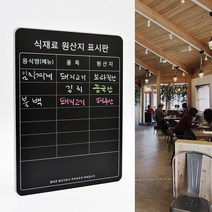 식재료 원산지 표시판
음식명(메뉴) 품목 원산지
김치찌개 돼지고기 국내산
김치 중국산
불백 돼지고기